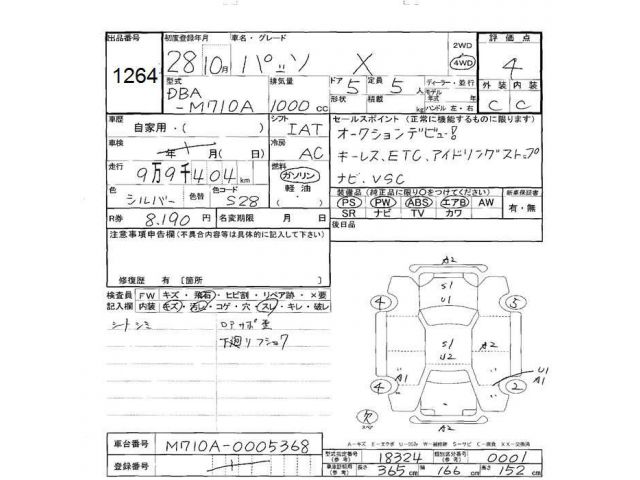 出品番号 初度登録年月 車名・グレード 2WD 評価点
1264 28 10月 パッソ X 4WD 4
型式 排気量 ドア 定員 ディーラー・並行 外装 内装
DBA 5 5人 モデル年式 年
-M710A 1000cc 形状 積載 ハンドル 左・右 C C
車歴 シフト セールスポイント (正常に機能するものに限ります)
自家用・( ) IAT オークションデビュー!
車検 冷房
年 月 AC キーレス、ETC、アイドリングストップ
走行 燃料
9万9千404km ガソリン ナビ、VSC
色 色替 色コード 軽油 装備品 (純正品に限り○をつけてください) 新車保証書
シルバー S28 ( ) PS PW ABS エアB AW 有・無
R券 8.190円 名変期限 月 日 SR ナビ TV カワ
注意事項申告欄(不具合内容等は具体的に記入して下さい) 後日品
修復歴 有 [箇所 ]
検査員 FW キズ・飛石・ヒビ割・リペア跡・×要
記入欄 内装 キズ・汚レ・コゲ・穴・スレ・キレ・破レ
シートシミ
下廻リ
A2
S1
U1
4 5
S1 A2
U2
A1 U1
A1
4 2
欠
A2
A-キズ E-エクボ U-凹み W-補修跡 S-サビ C-腐食 XX-交換済
車台番号 M710A-0005368 型式指定番号(参考) 18324 類別区分番号(参考) 0001
登録番号 車庫証明用(参考) 長さ 365cm 幅 166cm 高さ 152cm